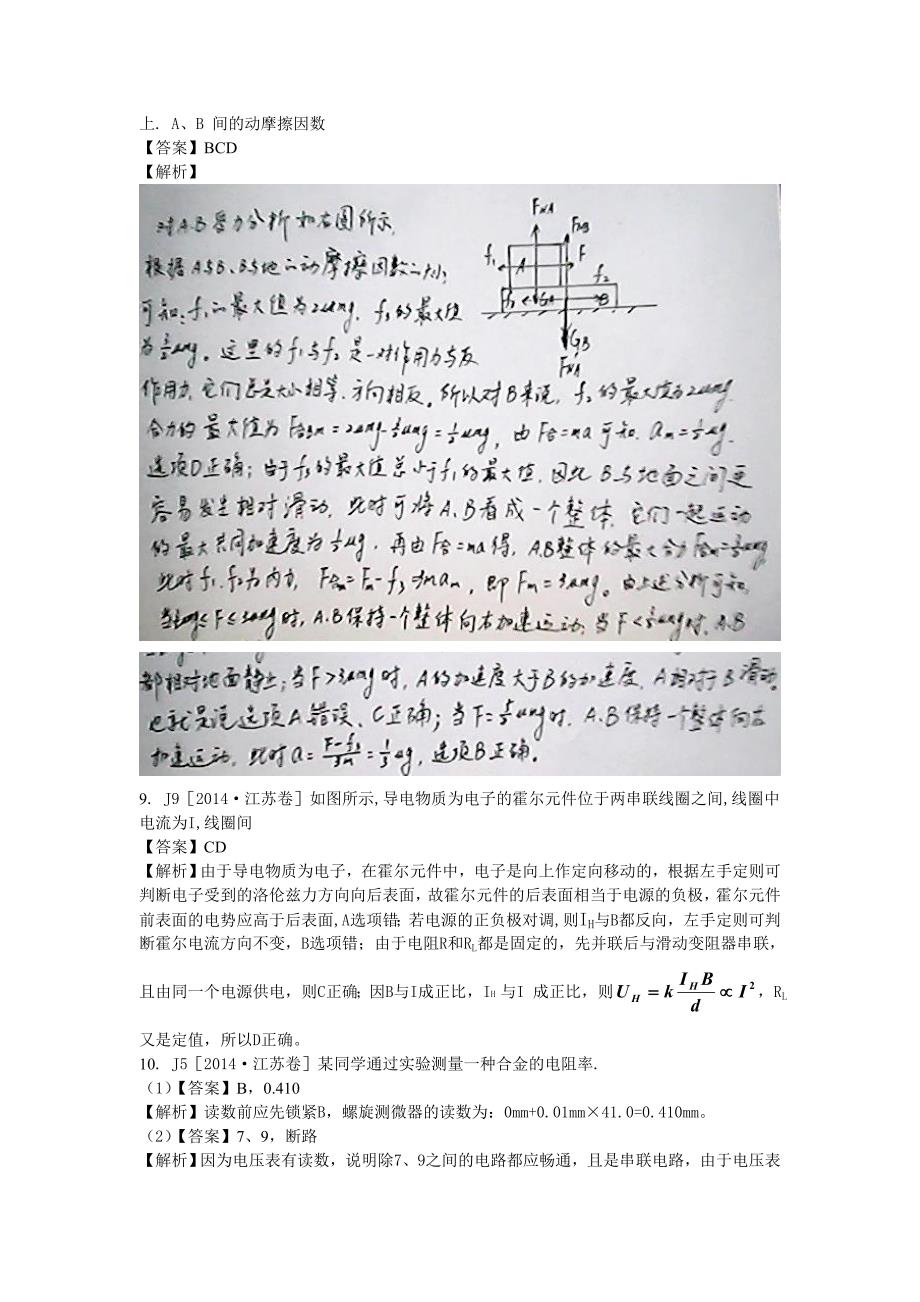 上. A、B 间的动摩擦因数
【答案】BCD
【解析】
对A.B受力分析如右图所示,
根据A与B、B与地之动摩擦因数之大小,
可知:f₁的最大值为2μmg. f₃的最大值
为3/2μmg。这里的f₁与f₂是一对作用力与反
作用力,它们总是大小相等.方向相反。所以对B来说,f₂的最大值为2μmg.
合力的最大值为F合Bm=2μmg-3/2μmg=1/2μmg,由F合=ma可知.am=1/2μg.
选项D正确;由于f₃的最大值总小于f₁的最大值,因此B与地面之间更
容易发生相对滑动.此时可将A、B看成一个整体.它们一起运动
的最大共同加速度为1/2μg.再由F合=ma得,A.B整体的最大合力F合m=3/2μmg,
此时f₁.f₂为内力,F合m=Fm-f₃=3mam,即Fm=3μmg。由上述分析可知,
当3/2μmg≤F≤3μmg时,A.B保持一个整体向右加速运动;当F<3/2μmg时.A.B
FNA
FNB
f₁
A
F
f₂
f₃
GA
B
GB
FNA
都相对地面静止;当F>3μmg时,A的加速度大于B的加速度,A相对于B滑动.
也就是说选项A错误、C正确;当F=5/2μmg时.A.B保持一个整体向右
加速运动,此时a=(F-f₃)/3m=1/3μg,选项B正确。
9. J9［2014·江苏卷］如图所示,导电物质为电子的霍尔元件位于两串联线圈之间,线圈中
电流为I,线圈间
【答案】CD
【解析】由于导电物质为电子，在霍尔元件中，电子是向上作定向移动的，根据左手定则可
判断电子受到的洛伦兹力方向向后表面，故霍尔元件的后表面相当于电源的负极，霍尔元件
前表面的电势应高于后表面,A选项错；若电源的正负极对调,则I_H与B都反向，左手定则可判
断霍尔电流方向不变，B选项错；由于电阻R和R_L都是固定的，先并联后与滑动变阻器串联，
且由同一个电源供电，则C正确；因B与I成正比，I_H 与I 成正比，则 U_H = k I_H B / d ∝ I²，R_L
又是定值，所以D正确。
10. J5［2014·江苏卷］某同学通过实验测量一种合金的电阻率.
（1）【答案】B，0.410
【解析】读数前应先锁紧B，螺旋测微器的读数为：0mm+0.01mm×41.0=0.410mm。
（2）【答案】7、9，断路
【解析】因为电压表有读数，说明除7、9之间的电路都应畅通，且是串联电路，由于电压表